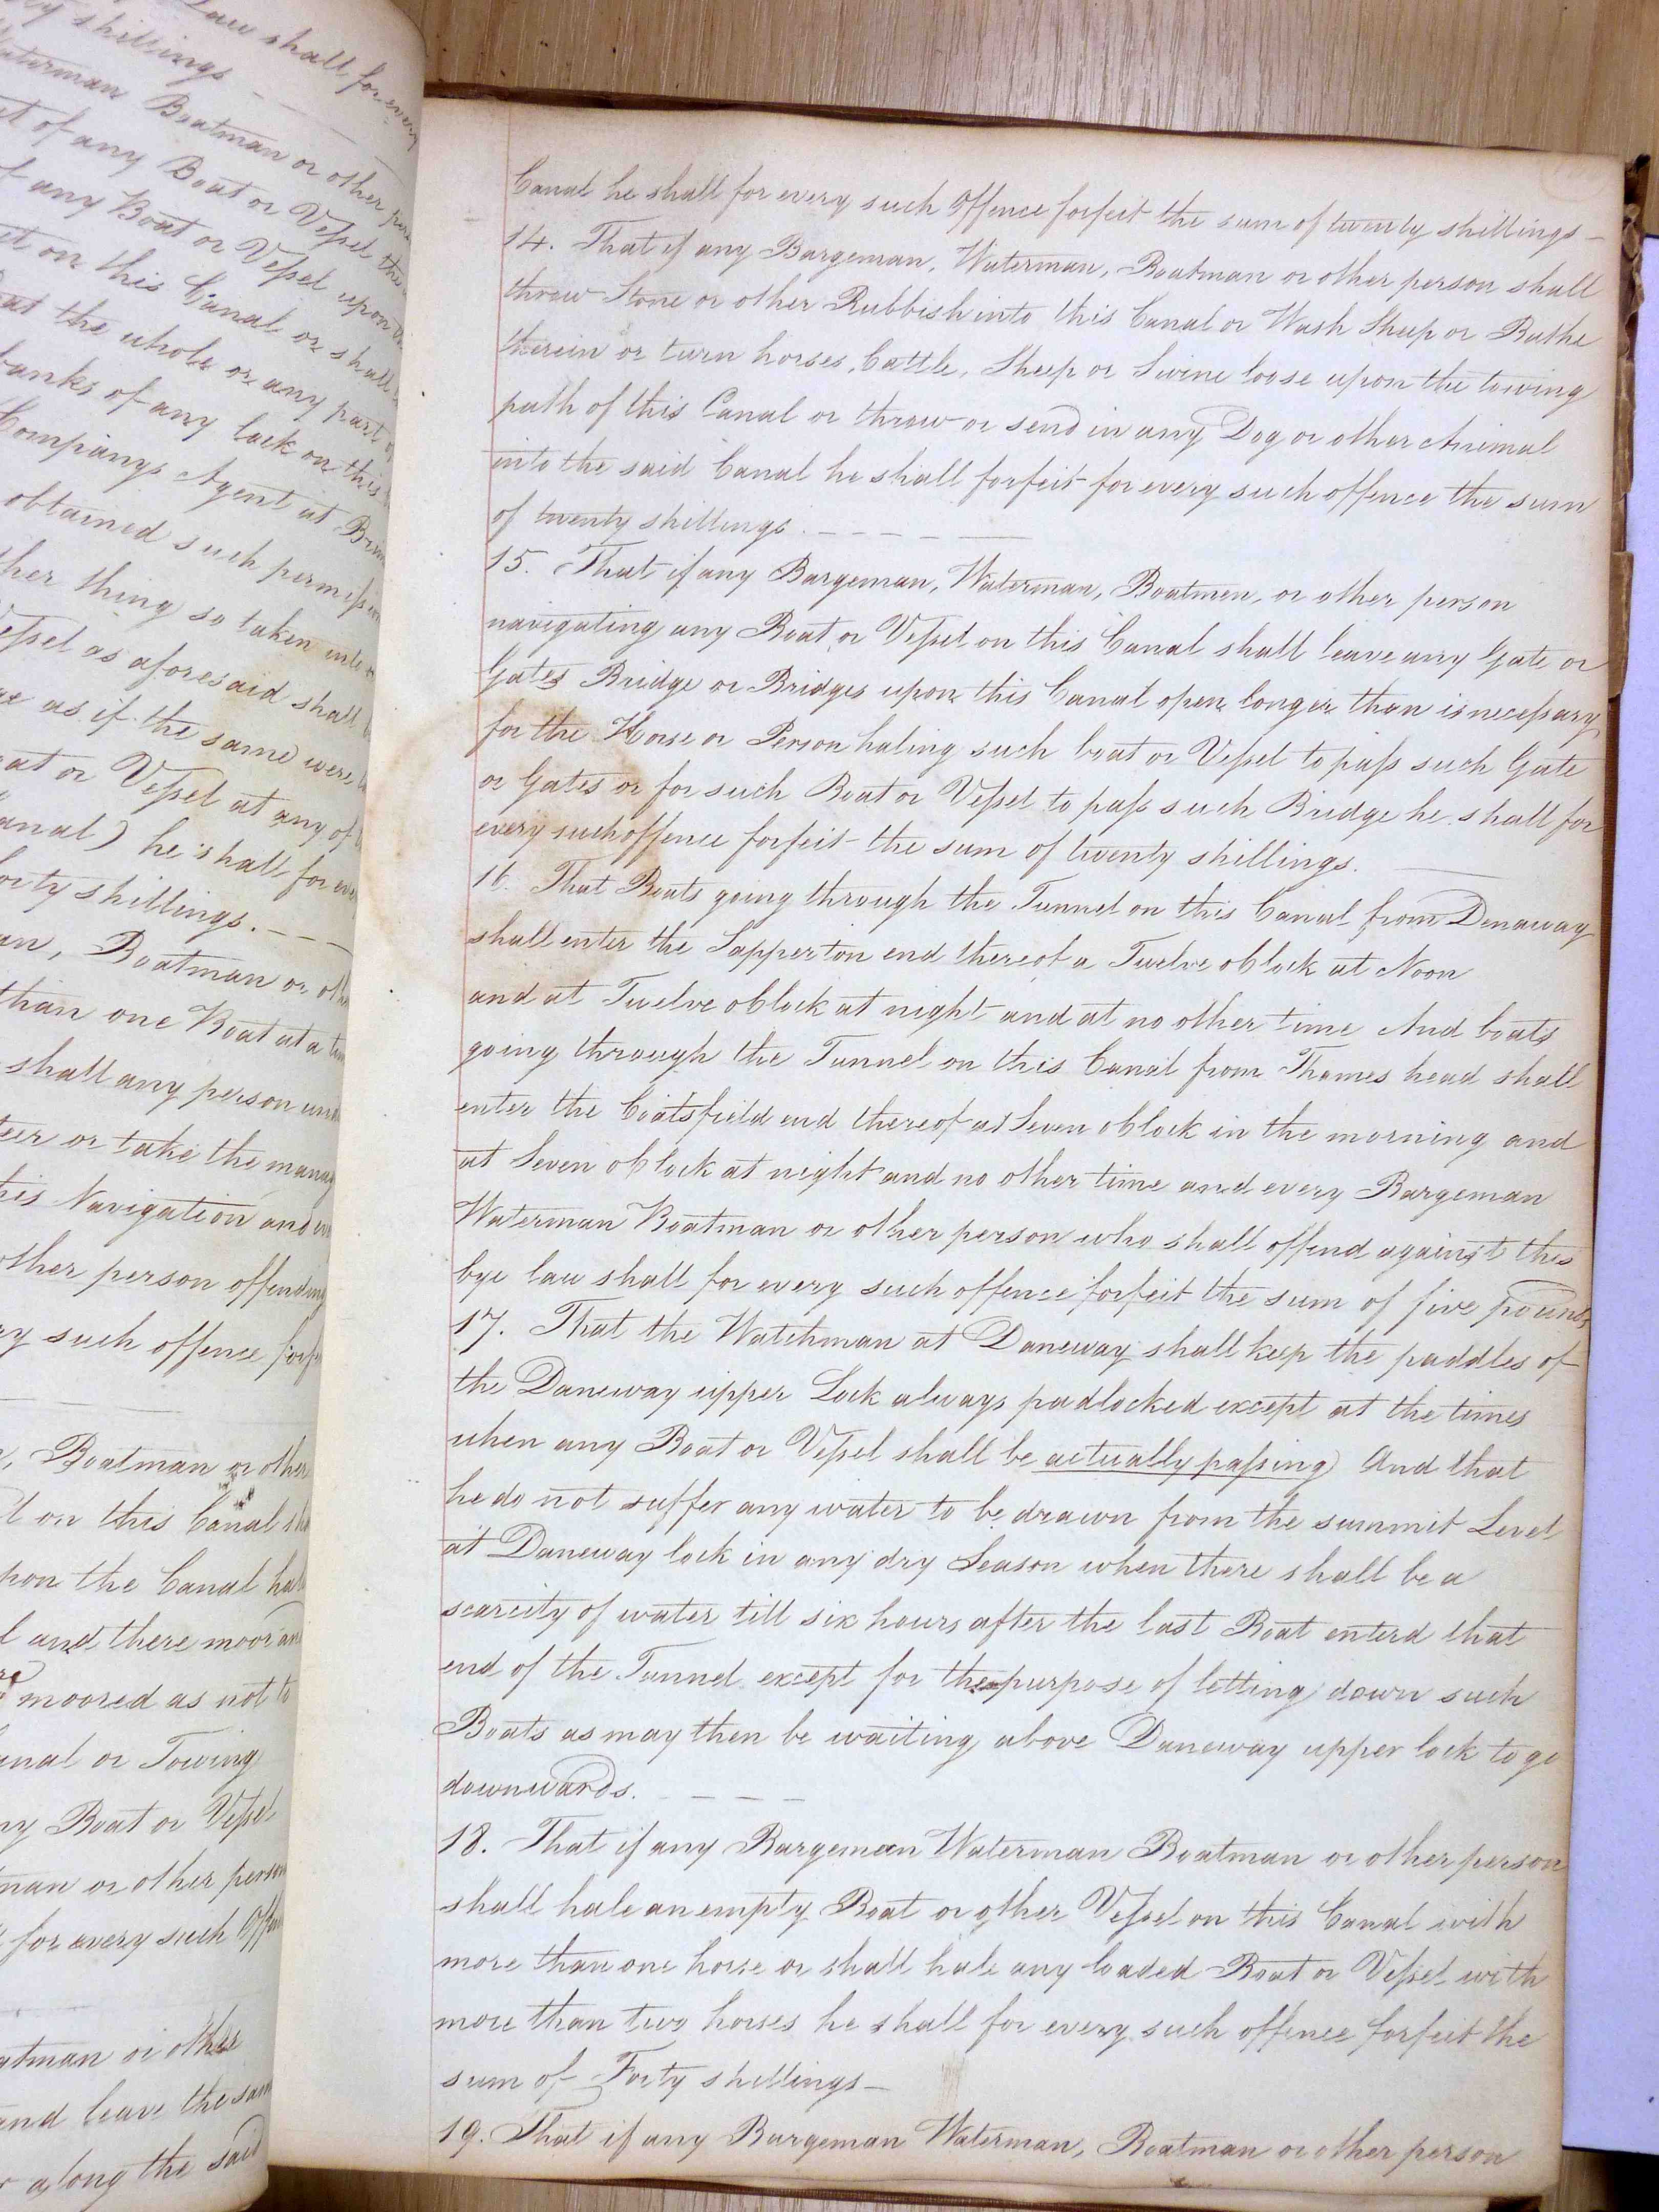 Law shall for every
ty shillings
aterman Boatman or other pers
t of any Boat or Vessel
f any Boat or Vessel upon
et on this Canal or shall
at the whole or any part
banks of any lock on this
Companys Agent at Brim
obtained such permission
her thing so taken into
essel as aforesaid shall
as if the same were
at or Vessel at any of
anal) he shall for every
orty shillings.
an, Boatman or oth
than one Boat at a tim
shall any person und
eer or take the manag
his Navigation and
other person offending
ry such offence forf
, Boatman or other
l on this Canal sha
pon the Canal ha
l and there moor an
moored as not to
anal or Towing
ny Boat or Vessel
man or other person
for every such Offen
atman or other
and leave the same
along the said
Canal he shall for every such Offence forfeit the sum of twenty shillings
14. That if any Bargeman, Waterman, Boatman or other person shall
throw Stone or other Rubbish into this Canal or Wash Sheep or Bathe
therein or turn horses, Cattle, Sheep or Swine loose upon the towing
path of this Canal or throw or send in any Dog or other Animal
into the said Canal he shall forfeit for every such offence the sum
of twenty shillings.
15. That if any Bargeman, Waterman, Boatmen, or other person
navigating any Boat or Vessel on this Canal shall leave any Gate or
Gates Bridge or Bridges upon this Canal open longer than is necessary
for the Horse or Person haling such boat or Vessel to pass such Gate
or Gates or for such Boat or Vessel to pass such Bridge he shall for
every such offence forfeit the sum of twenty shillings.
16. That Boats going through the Tunnel on this Canal from Denaway
shall enter the Sapperton end thereof a Twelve oClock at Noon
and at Twelve oClock at night and at no other time And boats
going through the Tunnel on this Canal from Thames head shall
enter the Coatsfield end thereof at Seven oClock in the morning and
at Seven oClock at night and no other time and every Bargeman
Waterman Boatman or other person who shall offend against this
bye law shall for every such offence forfeit the sum of five pounds
17. That the Watchman at Daneway shall keep the paddles of
the Daneway upper Lock always padlocked except at the times
when any Boat or Vessel shall be actually passing And that
he do not suffer any water to be drawn from the summit Level
at Daneway lock in any dry Season when there shall be a
scarcity of water till six hours after the last Boat enterd that
end of the Tunnel except for the purpose of letting down such
Boats as may then be waiting above Daneway upper lock to go
downwards.
18. That if any Bargeman Waterman Boatman or other person
shall hale an empty Boat or other Vessel on this Canal with
more than one horse or shall hale any loaded Boat or Vessel with
more than two horses he shall for every such offence forfeit the
sum of Forty shillings
19. That if any Bargeman Waterman, Boatman or other person